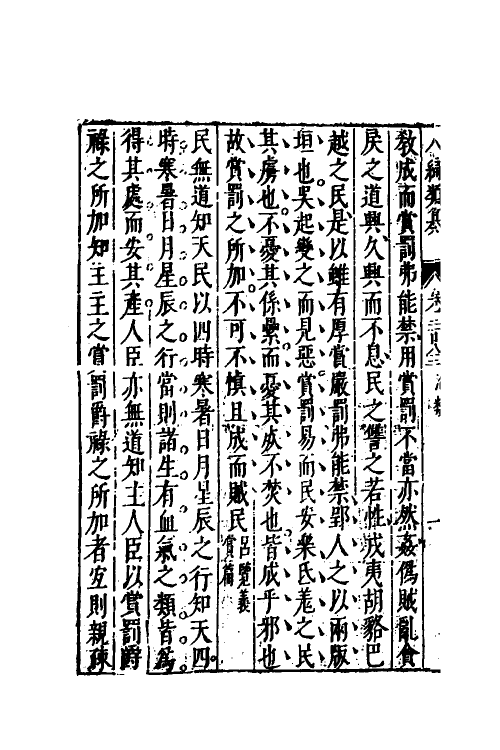 八編類纂 卷 治類 一
教成而賞罰弗能禁用賞罰不當亦然姦偽賊亂貪
戾之道興久興而不息民之讐之若性戎夷胡貉巴
越之民是以雖有厚賞嚴罰弗能禁郢人之以兩版
垣也吳起變之而見惡賞罰易而民安樂氐羗之民
其虜也不憂其係纍而憂其死不焚也皆成乎邪也
故賞罰之所加不可不慎且成而賊民呂覽義賞篇
民無道知天民以四時寒暑日月星辰之行知天四
時寒暑日月星辰之行當則諸生有血氣之類皆為
得其處而安其產人臣亦無道知主人臣以賞罰爵
祿之所加知主主之賞罰爵祿之所加者宜則親疎